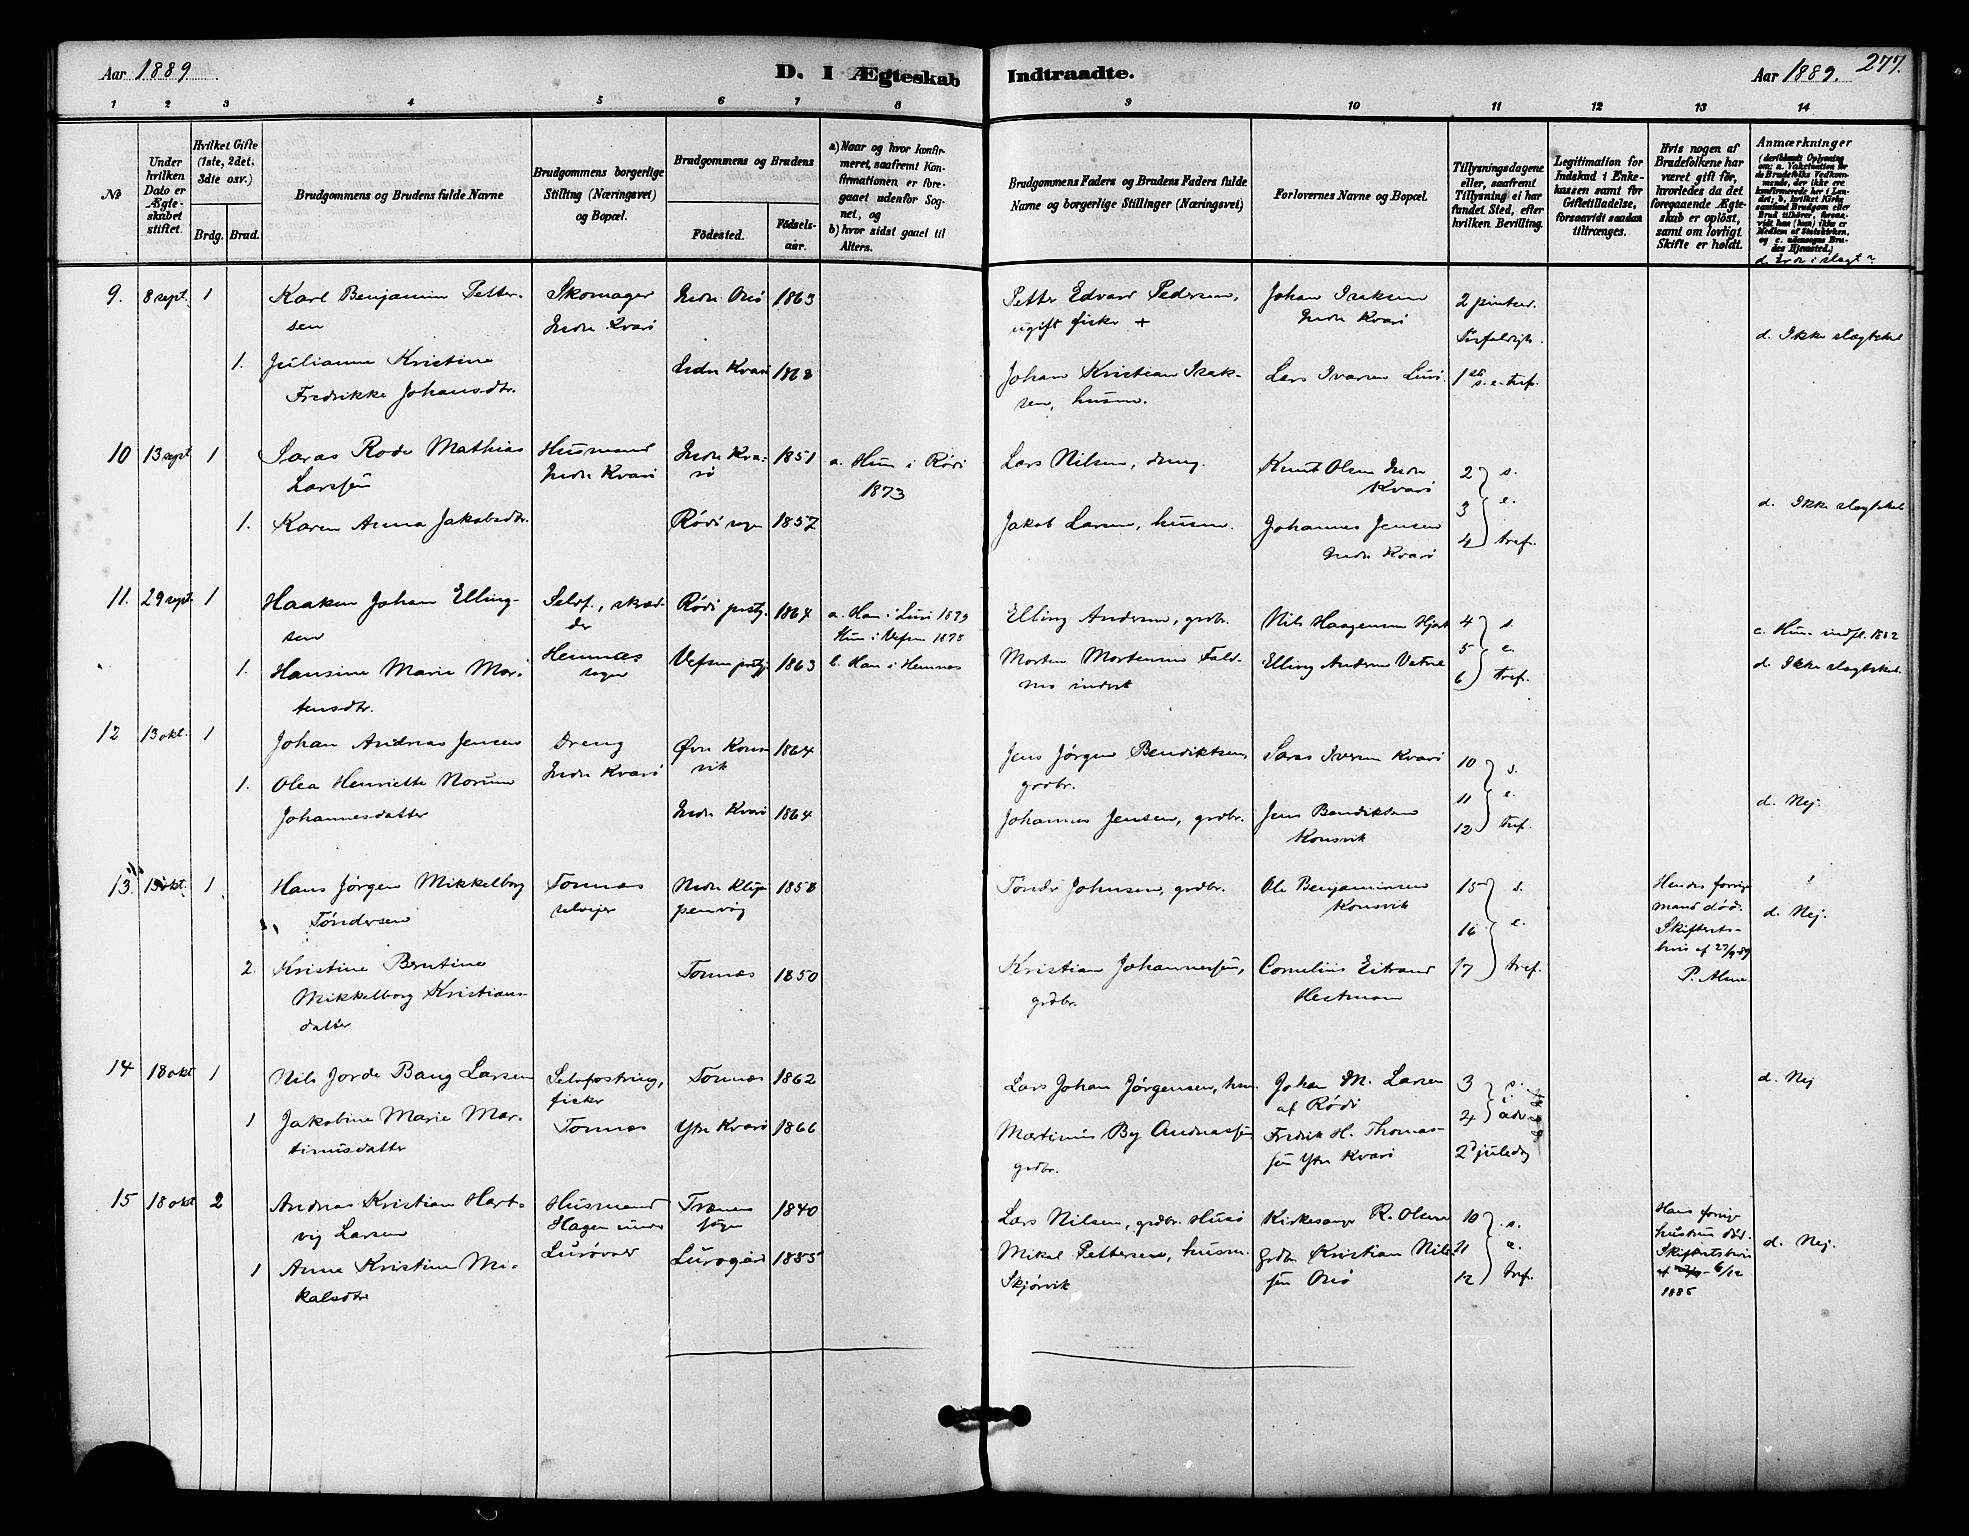 Aar 1889
D. I Ægteskab
Indtraadte.
Aar 1889.
277.
1 2 3 4 5 6 7 8
9 10 11 12 13 14
No
Under hvilken Dato er Ægteskabet stiftet.
Hvilket Gifte (1ste, 2det, 3die osv.)
Brdg. Brud.
Brudgommens og Brudens fulde Navne
Brudgommens borgerlige Stilling (Næringsvei) og Bopæl.
Brudgommens og Brudens
Födested.
Födselsaar.
a) Naar og hvor konfirmeret, saafremt Konfirmationen er foregaaet udenfor Sognet, og
b) hvor sidst gaaet til Alters.
Brudgommens Faders og Brudens Faders fulde Navne og borgerlige Stillinger (Næringsvei)
Forlovernes Navne og Bopæl.
Tillysningsdagene eller, saafremt Tillysning ei har fundet Sted, efter hvilken Bevilling.
Legitimation for Indskud i Enkekassen samt for Giftetilladelse, forsaavidt saadan tiltrænges.
Hvis nogen af Brudefolkene har været gift för, hvorledes da det foregaaende Ægteskab er oplöst, samt om lovligt Skifte er holdt.
Anmærkninger
9. 8 sept. 1
Karl Benjamin Petter-
sen
Skomager
Indre Kvarö
Indre Onö 1863
Petter Edvard Pedersen,
ugift fisker +
Johan Isaksen
Indre Kvarö
2 pintsed.
d. Ikke slægtskab
1. Julianne Kristine
Fredrikke Johansdtr.
Indre Kvarö 1868
Johan Kristian Isak-
sen, husm.
Lars Ivarsen Lurö.
1 es. e. tref.
10 13 sept 1
Saras Rode Mathias
Larssen
Husmand
Indre Kvarö
Indre Kva-
rö 1851
a. Hun i Rödö
1873
Lars Nilsen, dreng.
Knut Olsen Indre
Kvarö
2 s.
3 e.
4 tref.
d. Ikke slægtskab
1. Karen Anna Jakobsdtr.
Rödö sogn 1857
Jakob Larsen, husm.
Johannes Jensen
Indre Kvarö
11. 29 sept. 1
Haaken Johan Elling-
sen
Selvf., skræd-
der
Hemnæs
sogn
Rödö prstg. 1864
a. Han i Lurö 1879
Hun i Vefsn 1878
Elling Andersen, grdbr.
Nils Haagensen Hjart
4 s.
5 e.
6 tref.
c. Hun indfl. 1882
1. Hansine Marie Mor-
tensdtr.
Vefsen prstgj. 1863
b. Han i Hemnæs
Morten Mortensen Fald-
mo inderst
d. Ikke slægtskab.
12 13 okt. 1
Johan Andreas Jensen
Dreng
Indre Kvarö
Øvre Kons-
vik 1864
Jens Jörgen Bendiktsen,
grdbr.
Saras Iversen Kvarö
10 s.
11 e.
12 tref.
1. Olea Henriette Norum
Johannesdatter
Indre Kvarö 1864
Johannes Jensen, grdbr.
Jens Bendiktsen
Konsvik
d. Nej.
13. 13 okt. 1
Hans Jörgen Mikkelborg
Töndersen
Tonnæs
selvejer
1858
Tönder Johnsen, grdbr.
Ole Benjaminsen
Konsvik
15 s.
16 e.
17 tref.
Hendes forrige
mand död.
Skifterets-
bevis af 27/9 89
P. Alme
d. Nej.
2. Kristine Berntine
Mikkelborg Kristians-
datter
Tonnæs 1850
Kristian Johannessen,
grdbr.
Cornelius Eitrand
Hestmon
14 18 okt 1
Nils Jorde Bang Larsen
Selvfostring,
fisker
Tonnæs
Tonnæs 1862
Lars Johan Jörgensen, hm.
Johan M. Larsen
af Rödö
3 s. i
4 adv.
2d juledag
d. Nej
1 Jakobine Marie Mar-
tinusdatter
Ytre Kvarö 1866
Martinus By Andreassen
grdbr.
Fredrik H. Thomas-
sen Ytre Kvarö
15 18 okt 2
Andreas Kristian Hart-
vig Larsen
Husmand
Hagen under
Træenen
sogn 1840
Lars Nilsen, grdbr. Husö
Kirkesanger R. Olsen
10 s.
11 e.
12 tref.
Hans forrige
hustru död.
Skifteretsbevis
af 6/12
1886
d. Nej.
1 Anne Kristine Mi-
kalsdtr
Lurögård 1855
Mikal Pettersen, husm.
Skjörvik
Grdbr. Kristian Nils-
sen Onö